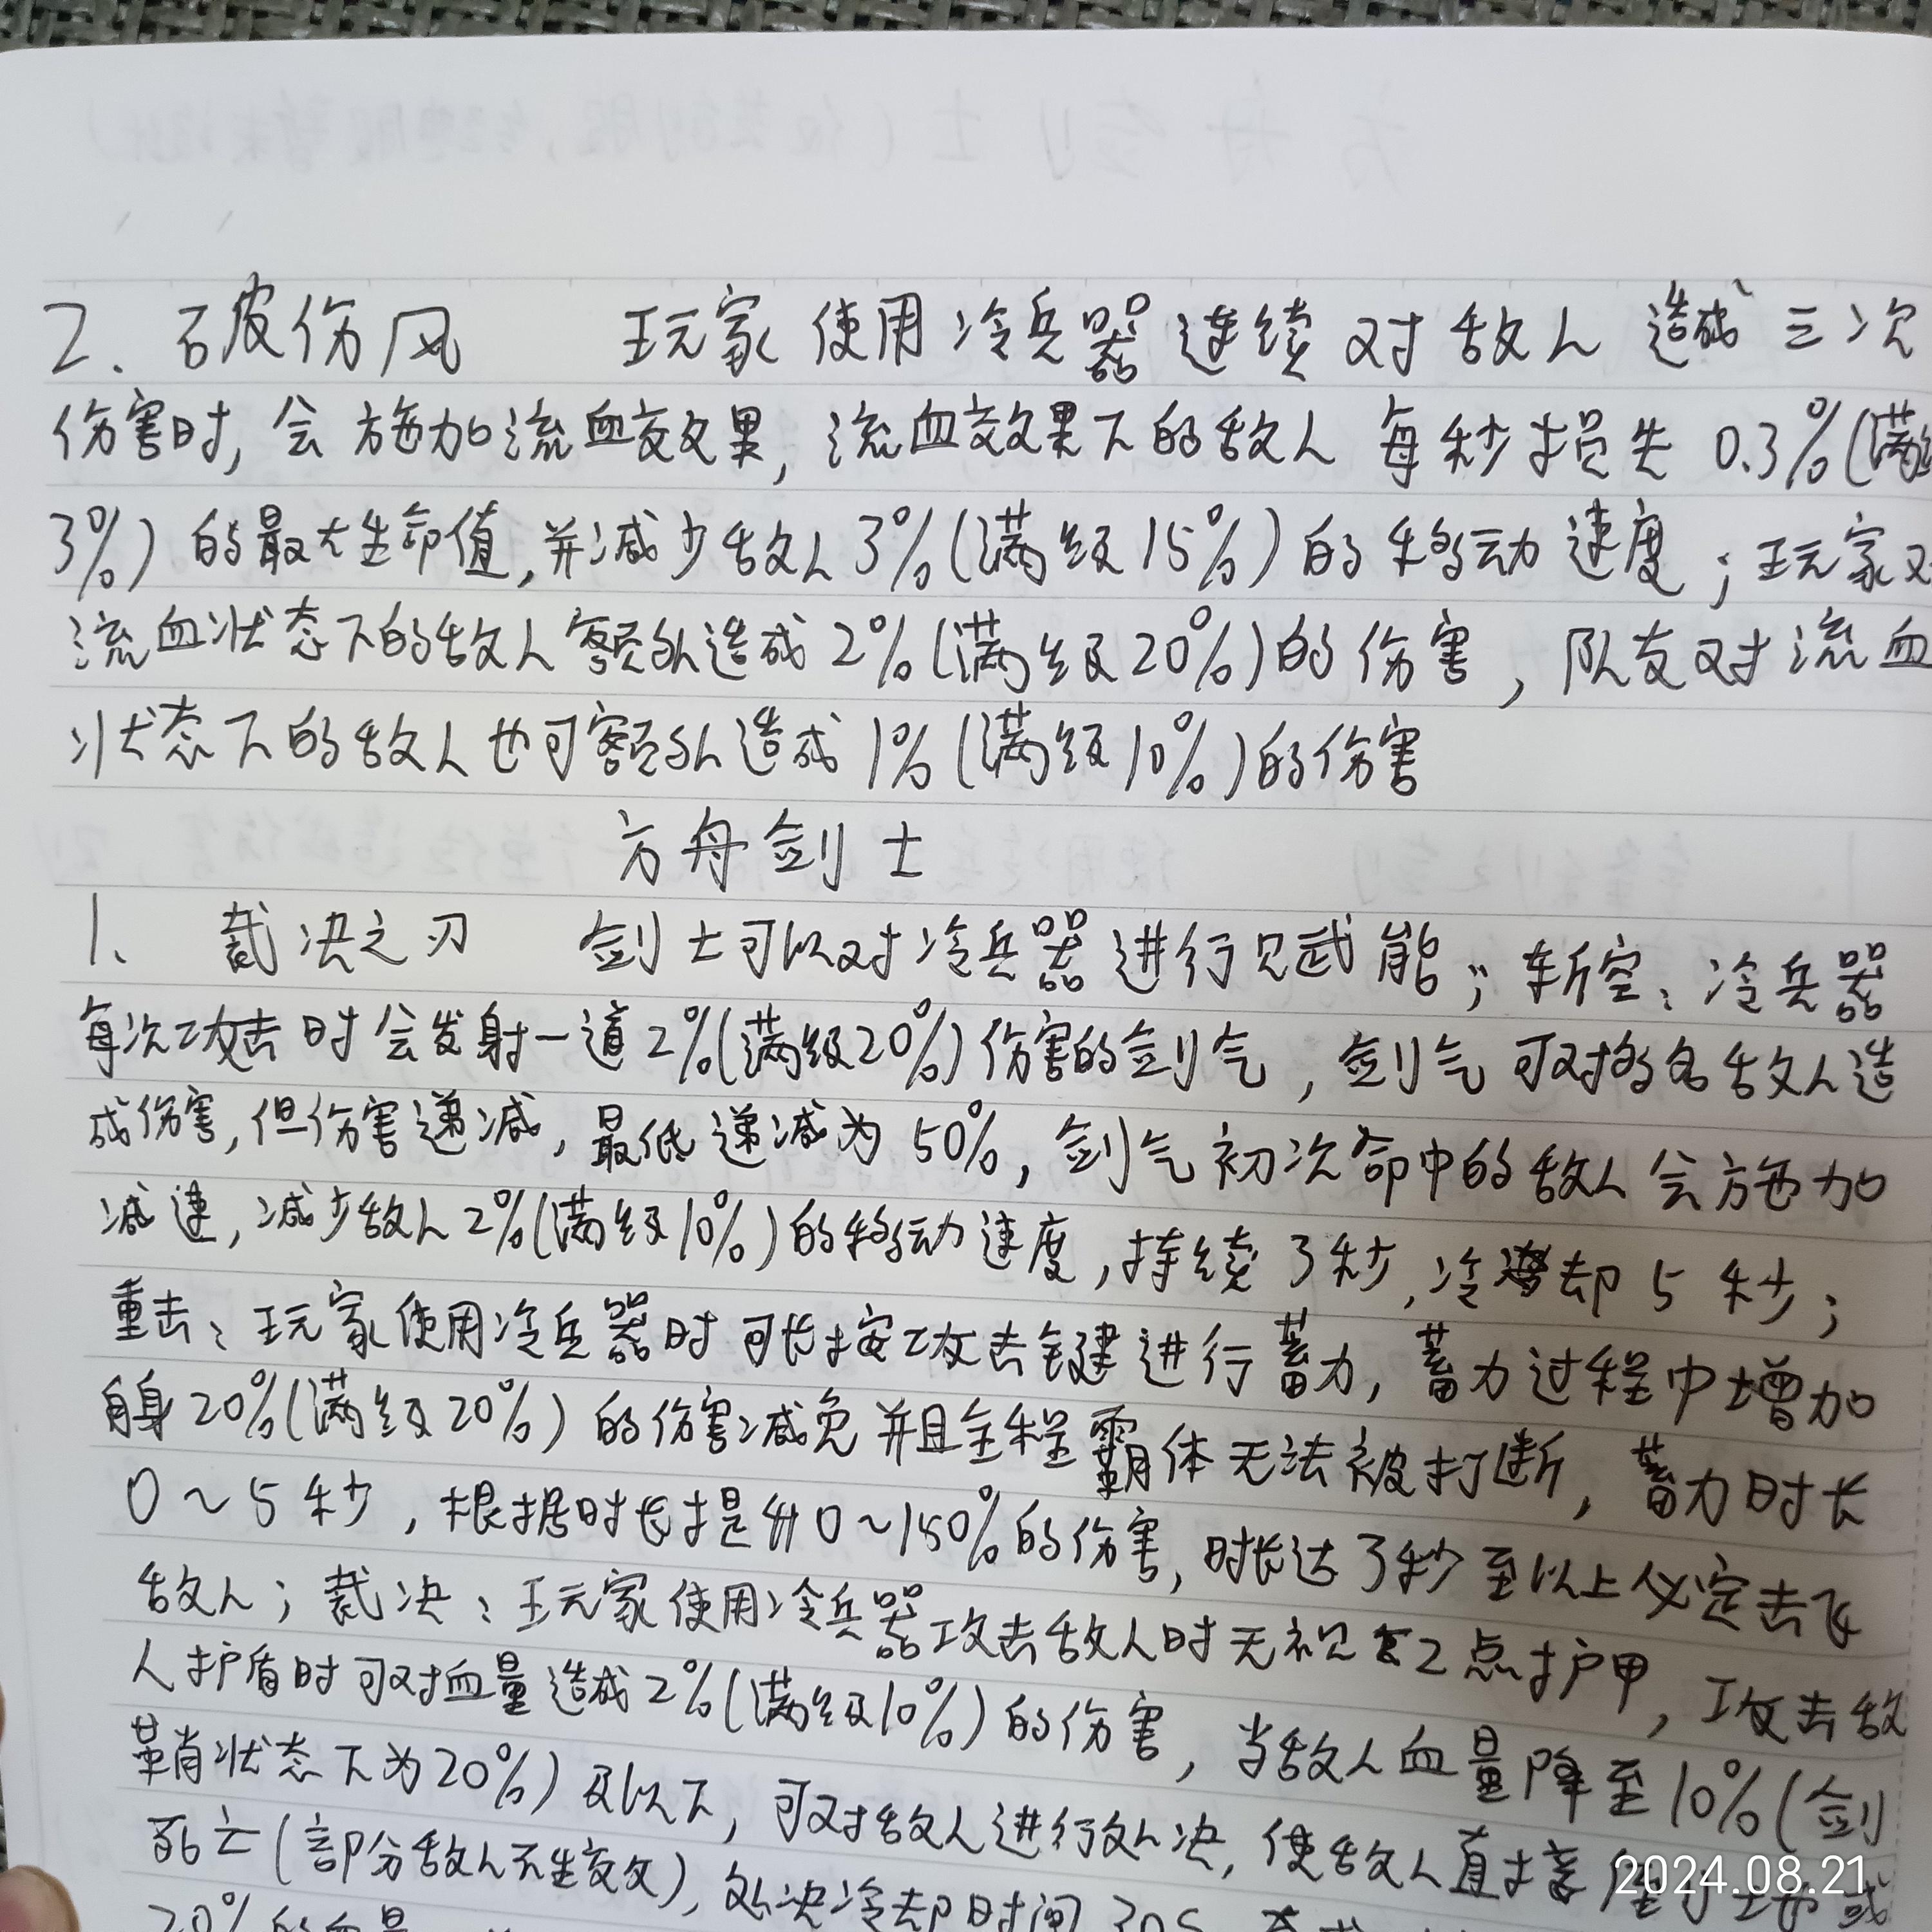 2. 破伤风 玩家使用冷兵器连续对敌人造成三次
伤害时, 会施加流血效果, 流血效果下的敌人每秒损失 0.3%(满
3%) 的最大生命值, 并减少敌人3%(满级15%) 的移动速度; 玩家对
流血状态下的敌人额外造成2%(满级20%)的伤害, 队友对流血
状态下的敌人也可额外造成1%(满级10%)的伤害
方舟剑士
1、 裁决之刃 剑士可以对冷兵器进行赋能; 斩空: 冷兵器
每次攻击时会发射一道2%(满级20%)伤害的剑气, 剑气可对多名敌人造
成伤害, 但伤害递减, 最低递减为50%, 剑气初次命中的敌人会施加
减速, 减少敌人2%(满级10%)的移动速度, 持续3秒, 冷却5秒;
重击: 玩家使用冷兵器时可长按攻击键进行蓄力, 蓄力过程中增加
自身20%(满级20%) 的伤害减免并且全程霸体无法被打断, 蓄力时长
0~5秒, 根据时长提升0~150%的伤害, 时长达3秒至以上必定击飞
敌人; 裁决: 玩家使用冷兵器攻击敌人时无视2点护甲, 攻击敌
人护盾时可对血量造成2%(满级10%)的伤害, 当敌人血量降至10%(剑
鞘状态下为20%) 及以下, 可对敌人进行处决, 使敌人直接
死亡(部分敌人不生效), 处决冷却时间30s
20%的血量
2024.08.21